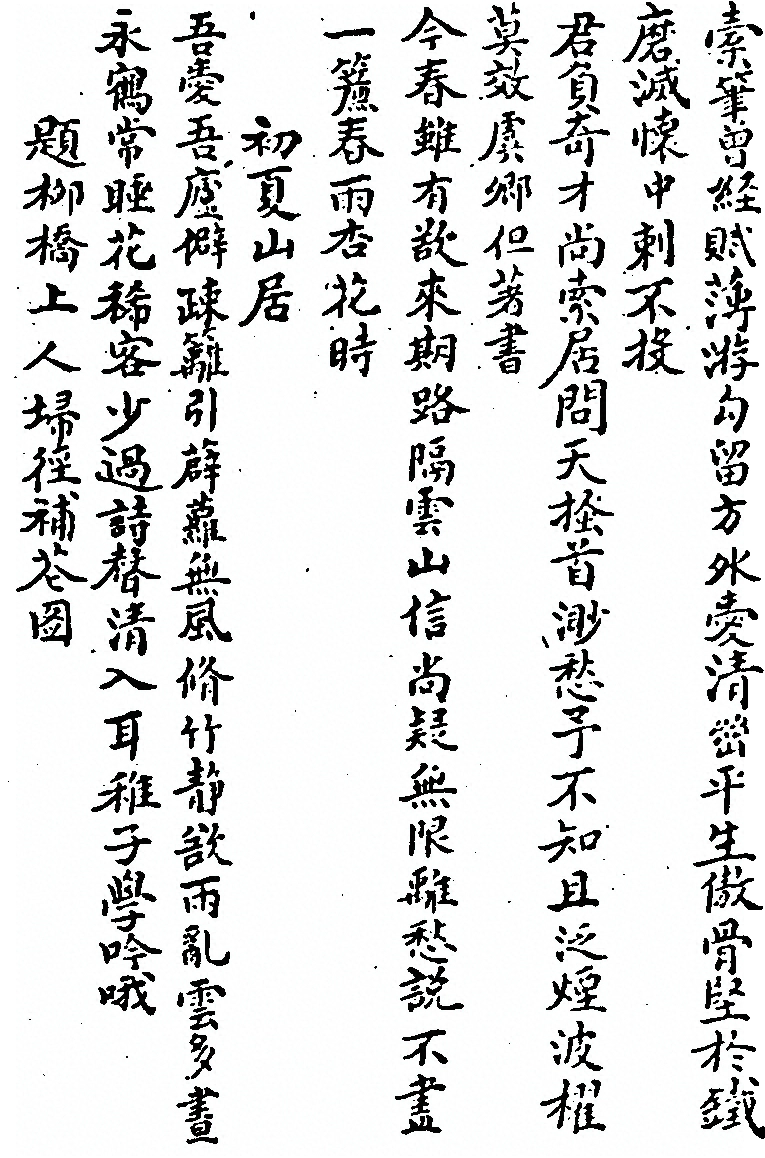 索筆曾經賦薄游勾留方外愛清幽平生傲骨堅於鐵
磨滅懷中刺不投
君負奇才尚索居問天搔首渺愁予不知且泛煙波櫂
莫效虞卿但著書
今春雖有欲來期路隔雲山信尚疑無限離愁說不盡
一簾春雨杏花時
初夏山居
吾愛吾廬僻疎籬引薜蘿無風脩竹靜欲雨亂雲多晝
永鶴常睡花稀客少過詩聲清入耳稚子學吟哦
題柳橋上人埽徑補花圖